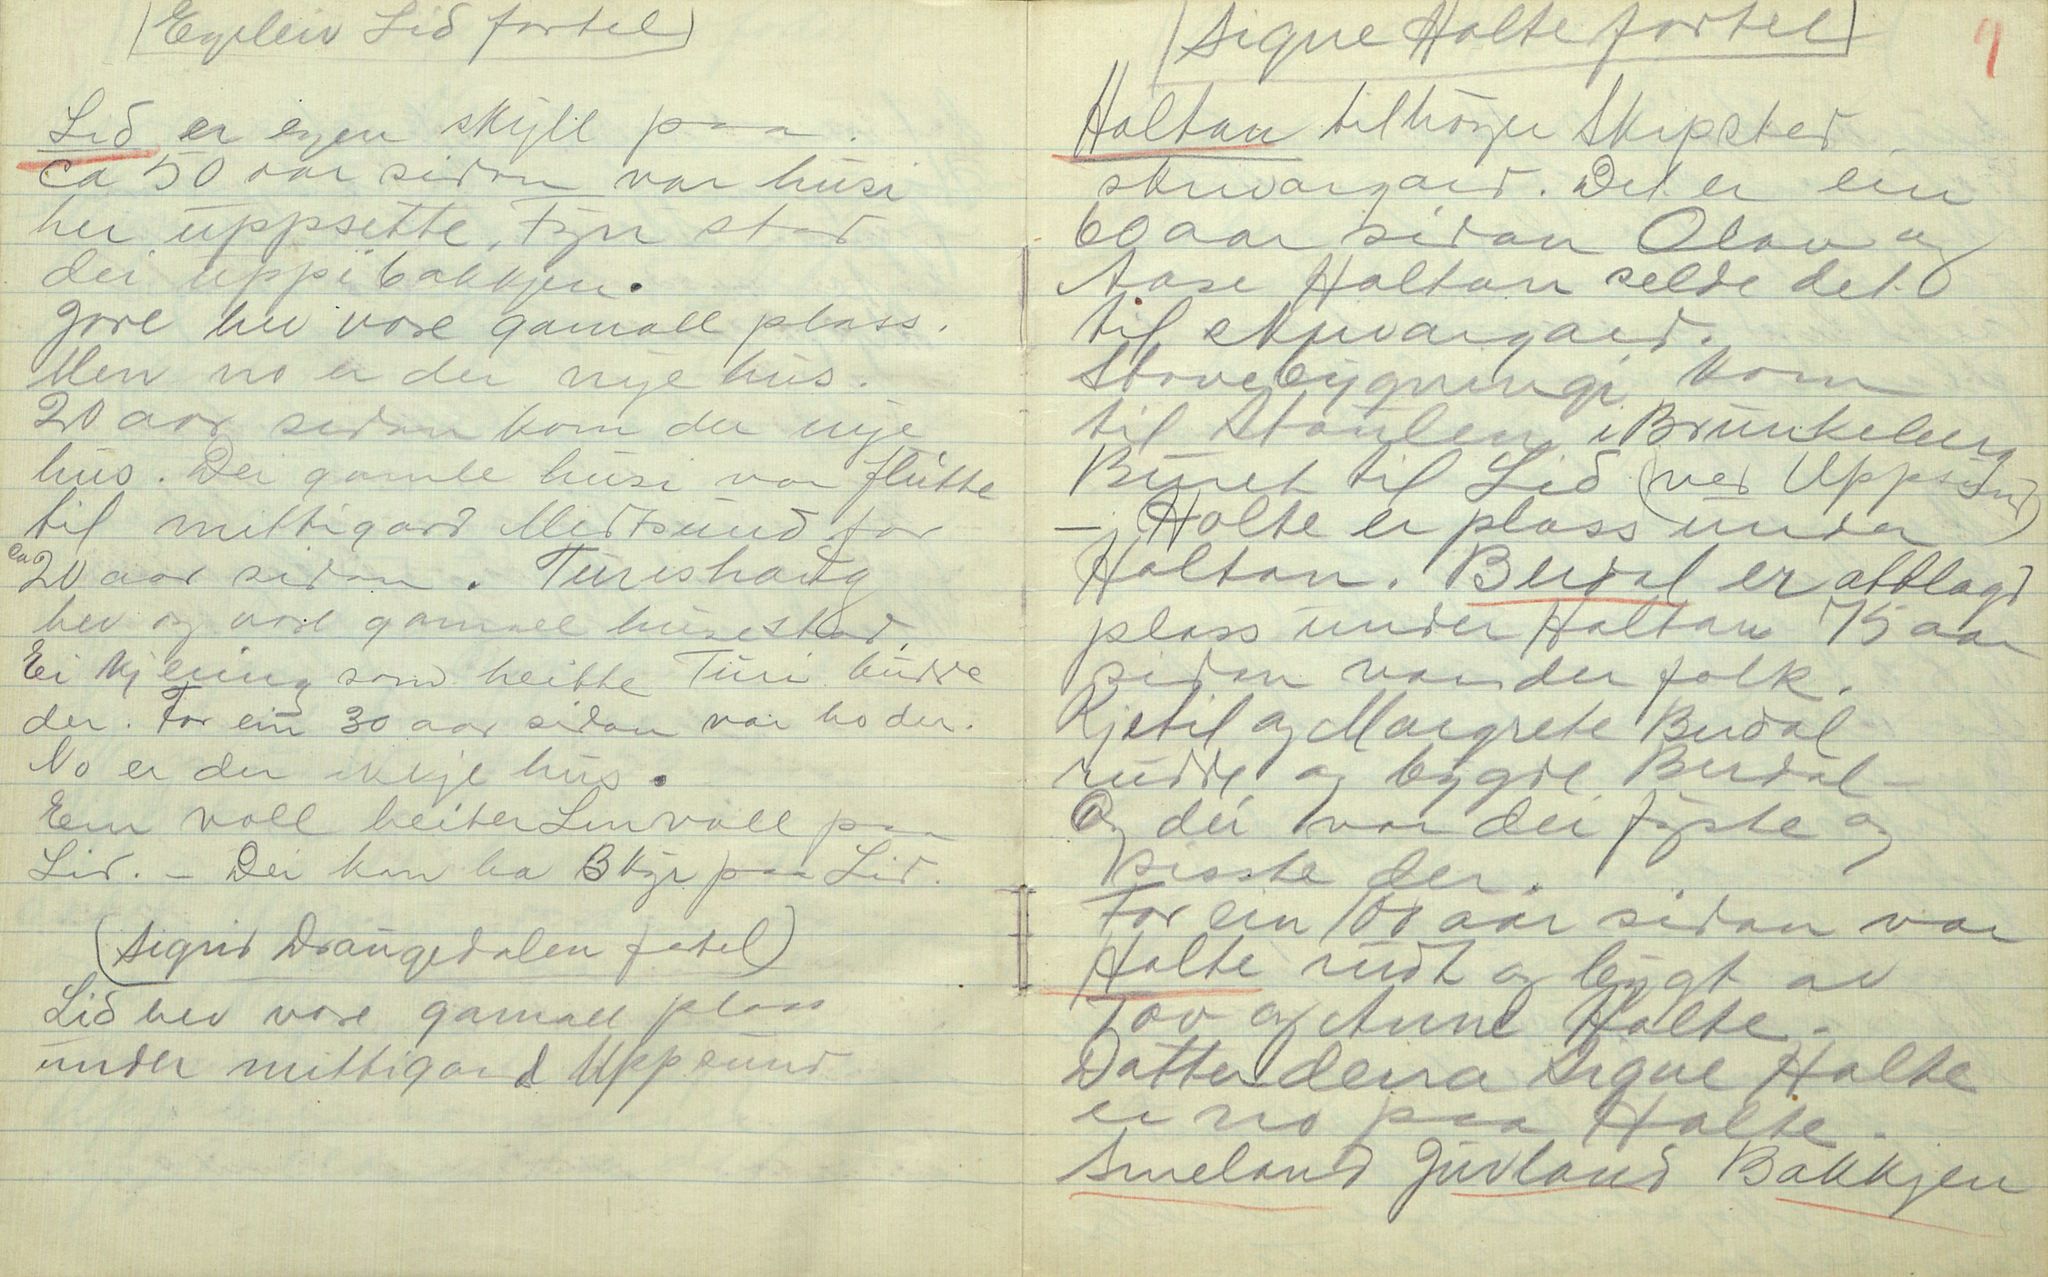 (Eyvleiv Lid fortel)
Lid er egen skyll paa.
ca 50 aar sidan var husi
her uppsette, Fyrr stod
dei uppi bakkjen.
Jore hev vore gamall plass.
Men no er der nye hus.
20 aar sidan kom der nye
hus. Dei gamle husi var flutte
til mittigard Midtsund for
ca 20 aar sidan. Turishaug
hev og vore gamall husestad.
Ei kjering som heitte Turi budde
der. For ein 30 aar sidan var ho der.
No er der ikkje hus.
Ein voll heiter Linvoll paa
Lid. - Dei kan ha 3 kyr paa Lid.
(Sigrid Draugedalen fortel)
Lid hev vore gamall plass
under mittigard Uppsund
(Signe Holte fortel)
9
Holtan tilhøyrer Skipsted
skrivargard. Det er ein
60 aar sidan Olav og
Aase Holtan selde det
til skrivargard.
Stovebygningi kom
til Staulen i Brunkeberg
Buret til Lid (ved Uppsund)
- Holte er plass under
Holtan. Berdal er attlagd
plass under Holtan 75 aar
sidan var der folk.
Kjetil og Margrete Berdal
rudde og bygde Berdal -
Og dei var dei fyste og
sisste der.
For ein 100 aar sidan var
Holte rudt og bygt av
Tov og Anne Holte.
Dotter deira Signe Holte
er no paa Holte.
Smeland Juvland Bakkjen